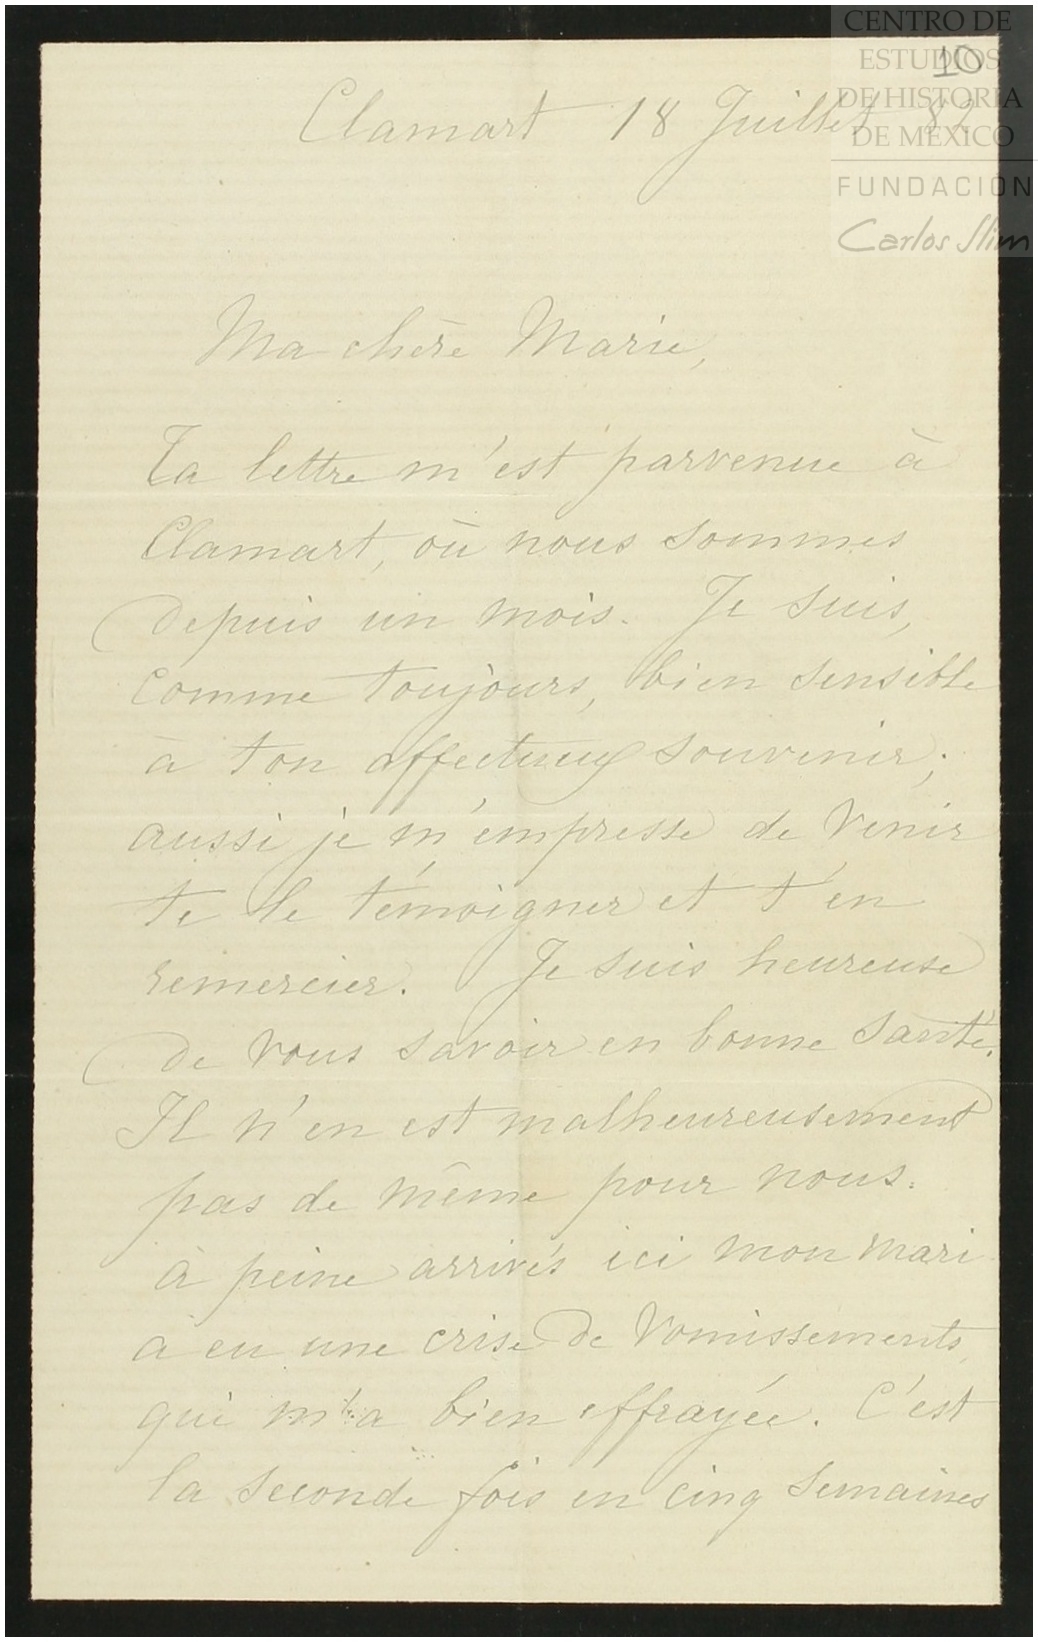 CENTRO DE
ESTUDIOS
DE HISTORIA
DE MEXICO
FUNDACIÓN
Carlos Slim
10
Clamart 18 Juillet 82
Ma chère Marie,
Ta lettre m'est parvenue à
Clamart, où nous sommes
depuis un mois. Je suis,
comme toujours, bien sensible
à ton affectueux souvenir;
aussi je m'empresse de venir
te le témoigner et t'en
remercier. Je suis heureuse
de vous savoir en bonne santé.
Il n'en est malheureusement
pas de même pour nous.
à peine arrivés ici mon mari
a eu une crise de vomissements,
qui m'a bien effrayée. C'est
la seconde fois en cinq semaines